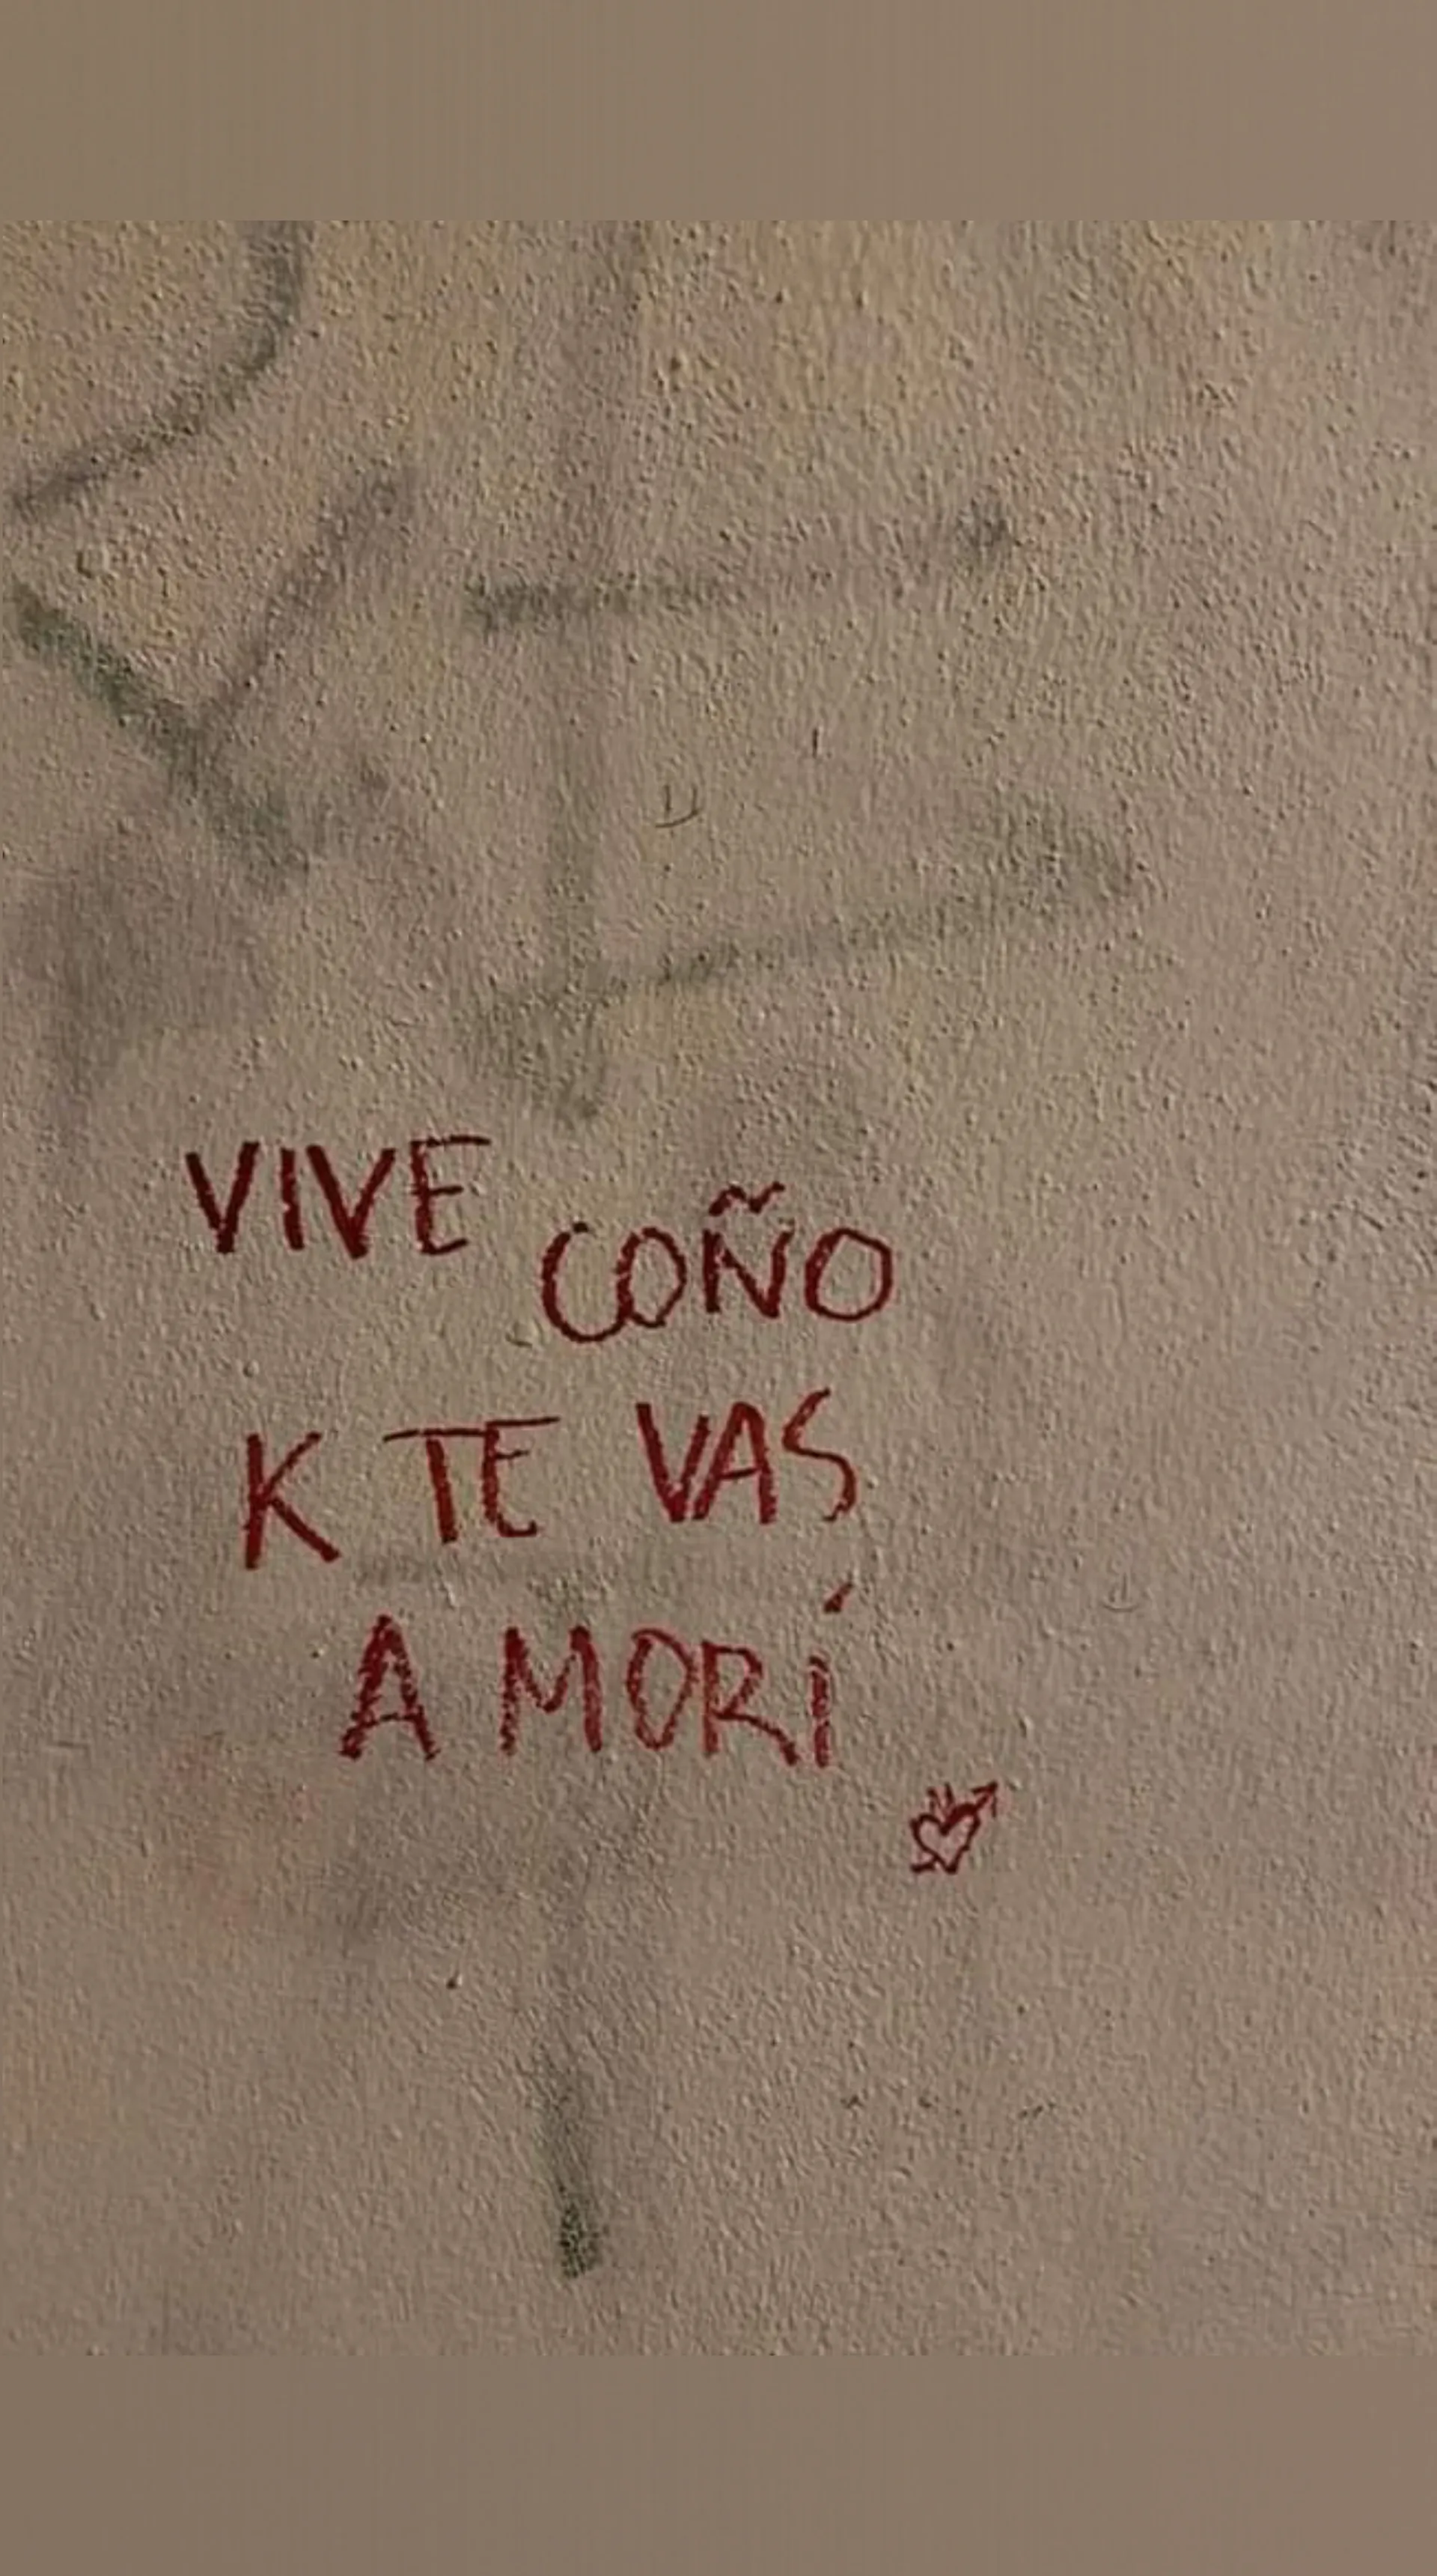 VIVE COÑO
K TE VAS
A MORÍ